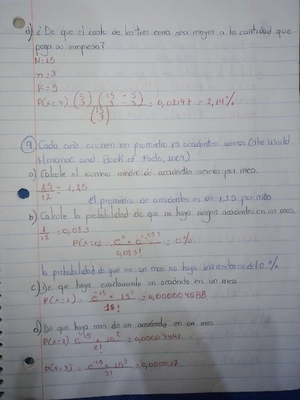 d) ¿De que el costo de las tres cenas sea mayor a la cantidad que
paga su empresa?
N=15
n=3
K=5
P(x=3) (5 3) (15-5 3-3) / (15 3) = 0,02197 = 2,19%
9 Cada año ocurren en promedio 15 accidentes aereos (the World
Almanac and Book of Facts, 2004)
a) Calcule el numero medio de accidentes aereos por mes.
15/12 = 1,25
El promedio de accidentes es de 1,25 por mes
b) Calcule la probabilidad de que no haya ningun accidente en un mes.
1/12 = 0,083
= 0%
la probabilidad de que en un mes no haya accidente es del 0%
c) De que haya exactamente un accidente en un mes
P(x=1) =
d) De que haya mas de un accidente en un mes
P(x=2)
P(x=3) = e⁻¹⁵ * 15³ / 3! =